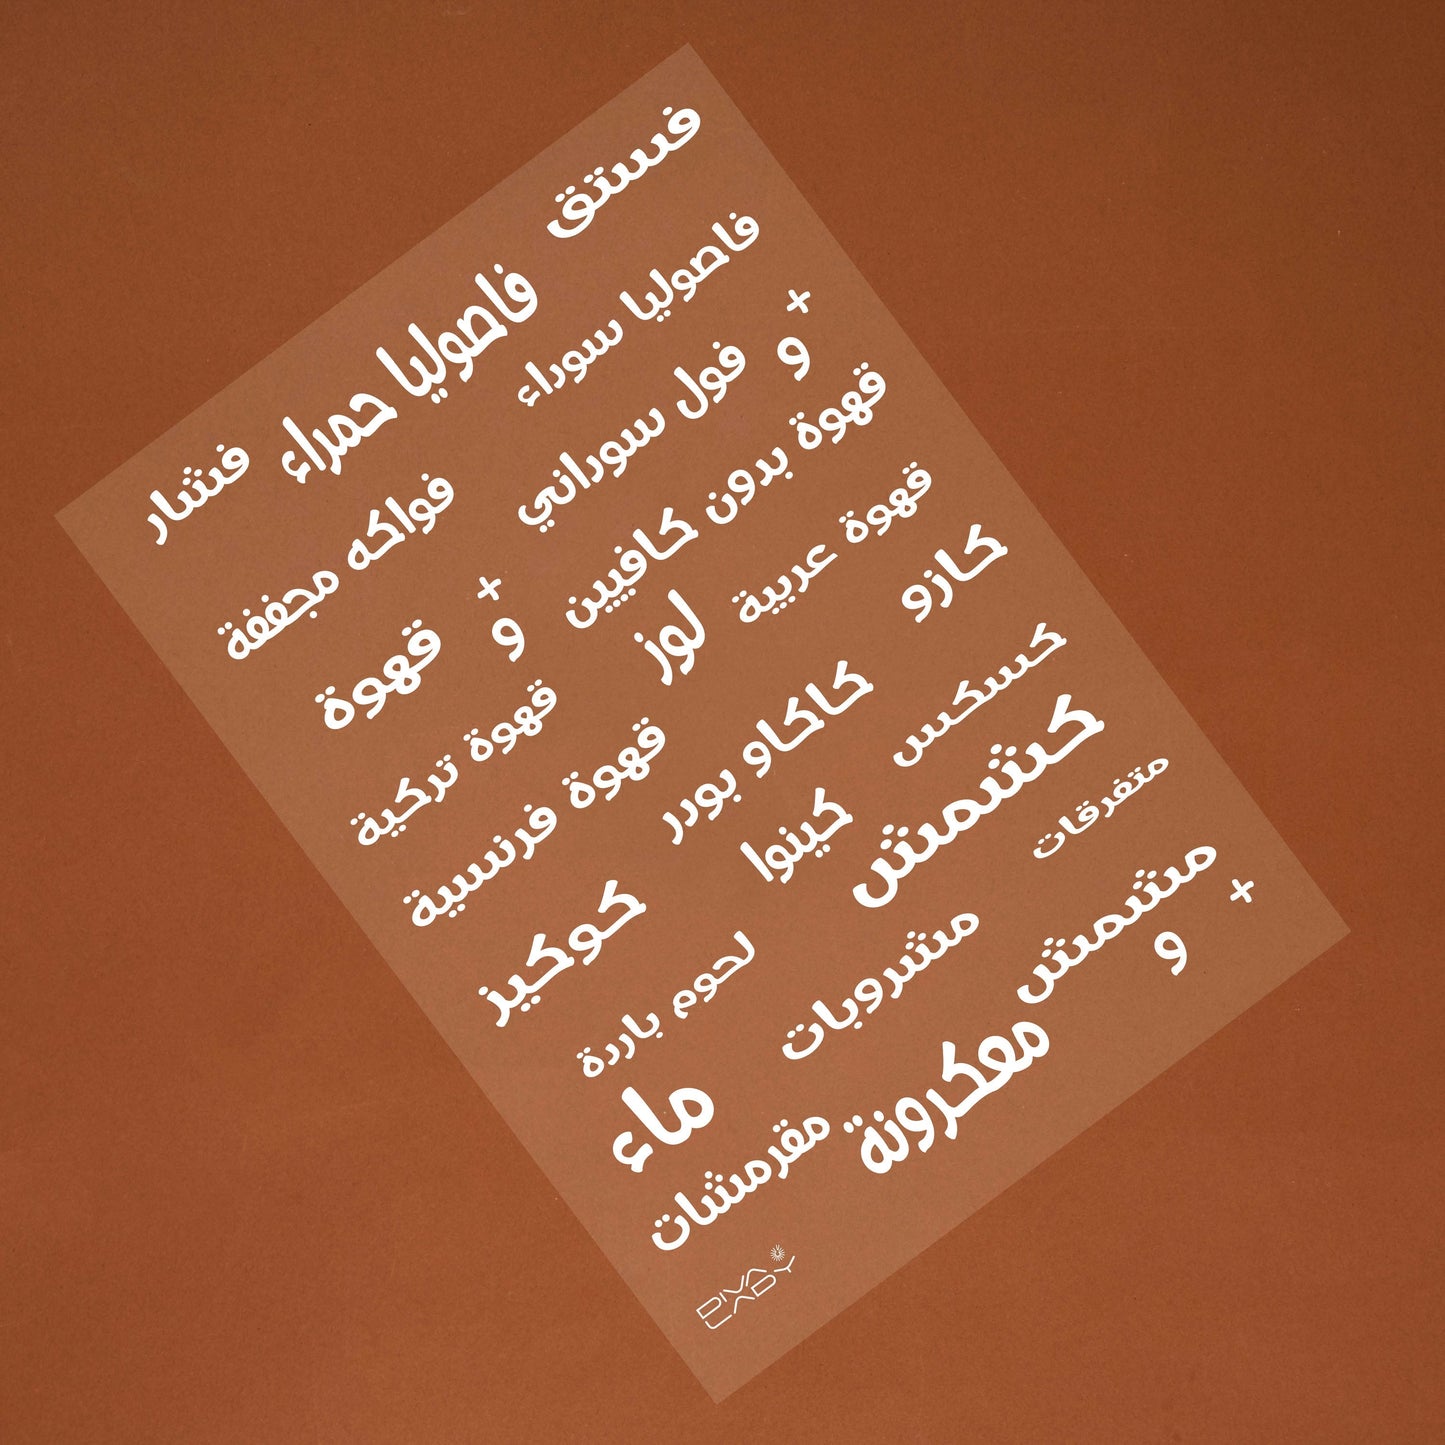 فستق
فاصوليا حمراء
فشار
فاصوليا سوداء
فول سوداني
و +
فواكه مجففة
قهوة
و +
قهوة بدون كافيين
قهوة عربية
لوز
كازو
قهوة تركية
قهوة فرنسية
كاكاو بودر
كسكس
كشمش
كينوا
كوكيز
متفرقات
مشمش
و +
مشروبات
لحوم باردة
ماء
معكرونة
مقرمشات
DIVA
LADY